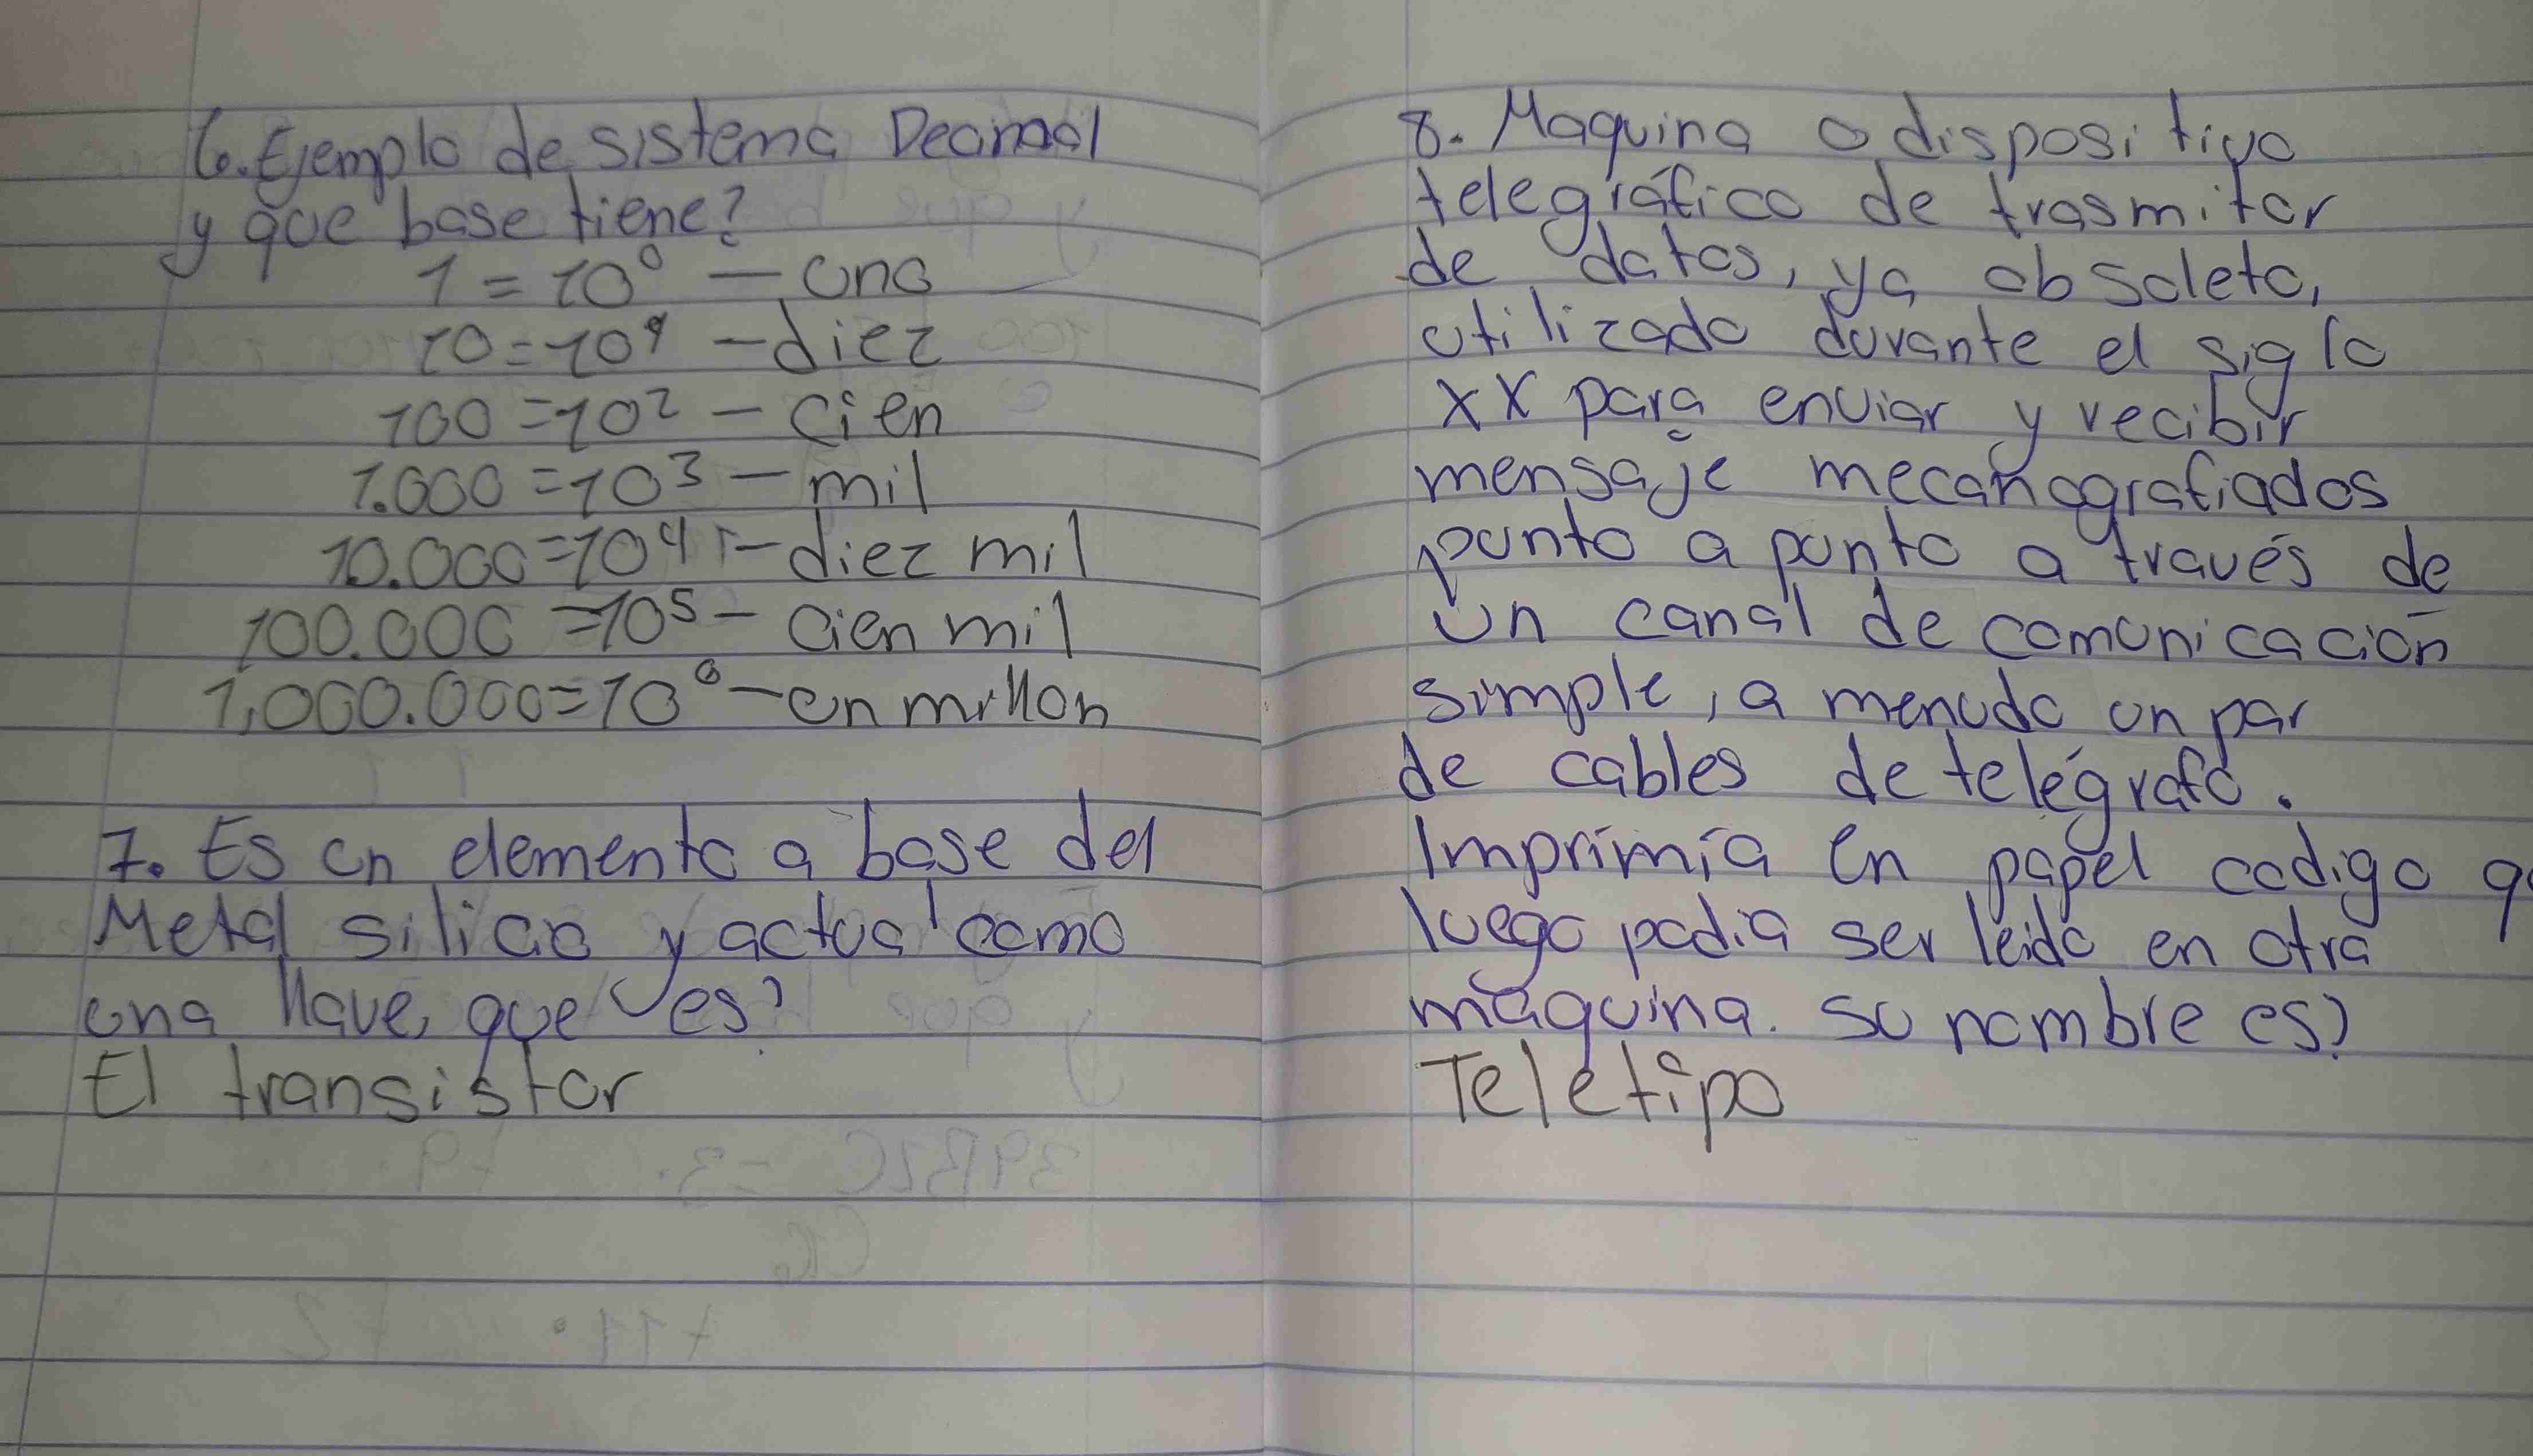 6. Ejemplo de sistema Decimal
y que base tiene?
1 = 10⁰ — uno
10 = 10¹ — diez
100 = 10² — cien
1.000 = 10³ — mil
10.000 = 10⁴ — diez mil
100.000 = 10⁵ — cien mil
1,000.000 = 10⁶ — un millon
7. Es un elemento a base del
Metal silicio y actua como
una llave, que es?
El transistor
8. Maquina o dispositivo
telegráfico de trasmitor
de datos, ya obsoleto,
utilizado durante el siglo
XX para enviar y recibir
mensaje mecanografiados
punto a punto a través de
un canal de comunicación
simple, a menudo un par
de cables de telégrafo.
Imprimía en papel codigo
luego podia ser leido en otra
máquina. su nombre es?
Teletipo